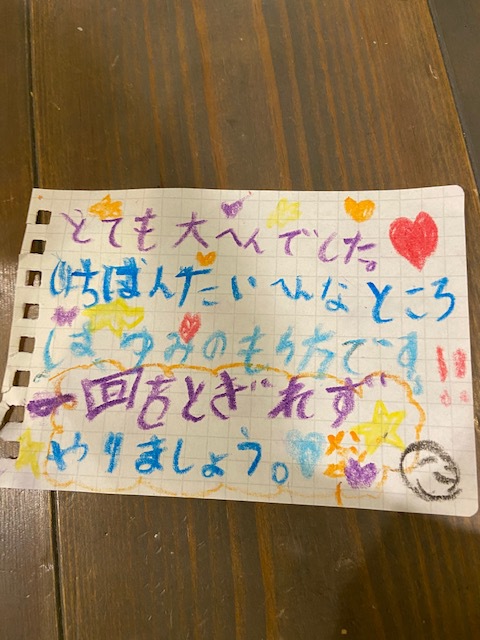 とても大へんでした。
いちばんたいへんなところ
はゆみのもち方です。!!
一回をとぎれず
やりましょう。